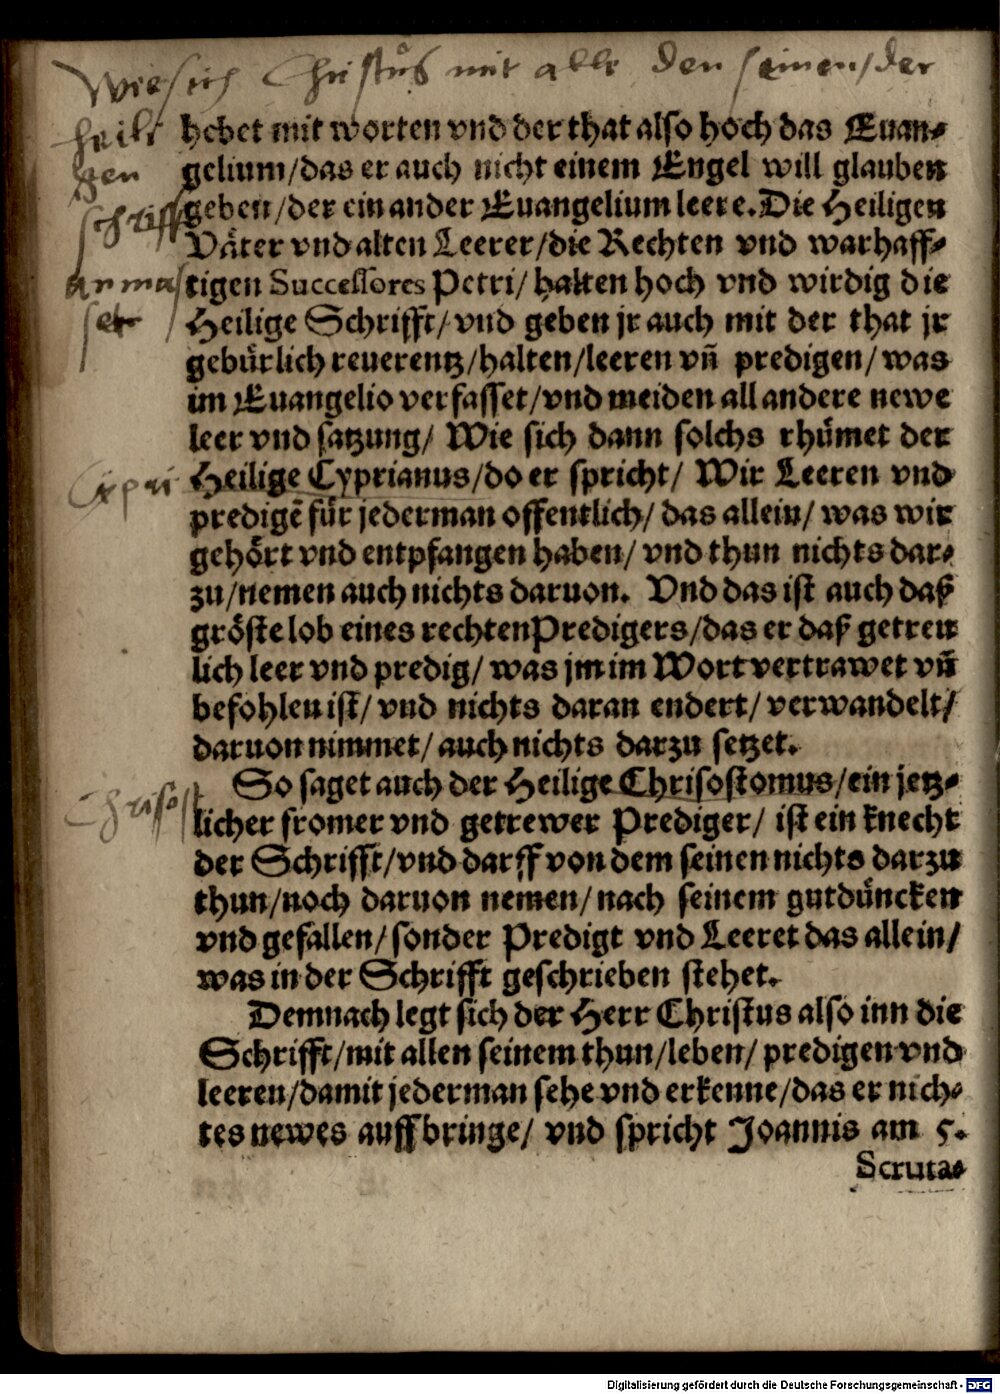 Wie sich Christus mit alle den seinen/der
heili
gen
schrifft
anmas
set
hebet mit worten vnd der that also hoch das Euan⸗
gelium/das er auch nicht einem Engel will glauben
geben/der ein ander Euangelium leere. Die Heiligen
Väter vnd alten Leerer/die Rechten vnd warhaff⸗
tigen Successores Petri/ halten hoch vnd wirdig die
Heilige Schrifft/vnd geben jr auch mit der that jr
gebürlich reuerentz/halten/leeren vñ predigen/was
im Euangelio verfasset/vnd meiden all andere newe
leer vnd satzung/ Wie sich dann solchs rhümet der
Cipri
Heilige Cyprianus/do er spricht/ Wir Leeren vnd
predigẽ für jederman offentlich/ das allein/ was wir
gehört vnd entpfangen haben/ vnd thun nichts dar⸗
zu/nemen auch nichts daruon. Vnd das ist auch daß
gröste lob eines rechten Predigers/das er daß getreu
lich leer vnd predig/ was jm im Wort vertrawet vñ
befohlen ist/ vnd nichts daran endert/ verwandelt/
daruon nimmet/ auch nichts darzu setzet.
Chrisost
So saget auch der Heilige Chrisostomus/ein jetz⸗
licher fromer vnd getrewer Prediger/ ist ein knecht
der Schrifft/vnd darff von dem seinen nichts darzu
thun/noch daruon nemen/nach seinem gutdüncken
vnd gefallen/sonder Predigt vnd Leeret das allein/
was in der Schrifft geschrieben stehet.
Demnach legt sich der Herr Christus also inn die
Schrifft/mit allen seinem thun/leben/ predigen vnd
leeren/damit jederman sehe vnd erkenne/das er nich⸗
tes newes auffbringe/ vnd spricht Joannis am 5.
Scruta⸗
Digitalisierung gefördert durch die Deutsche Forschungsgemeinschaft - DFG